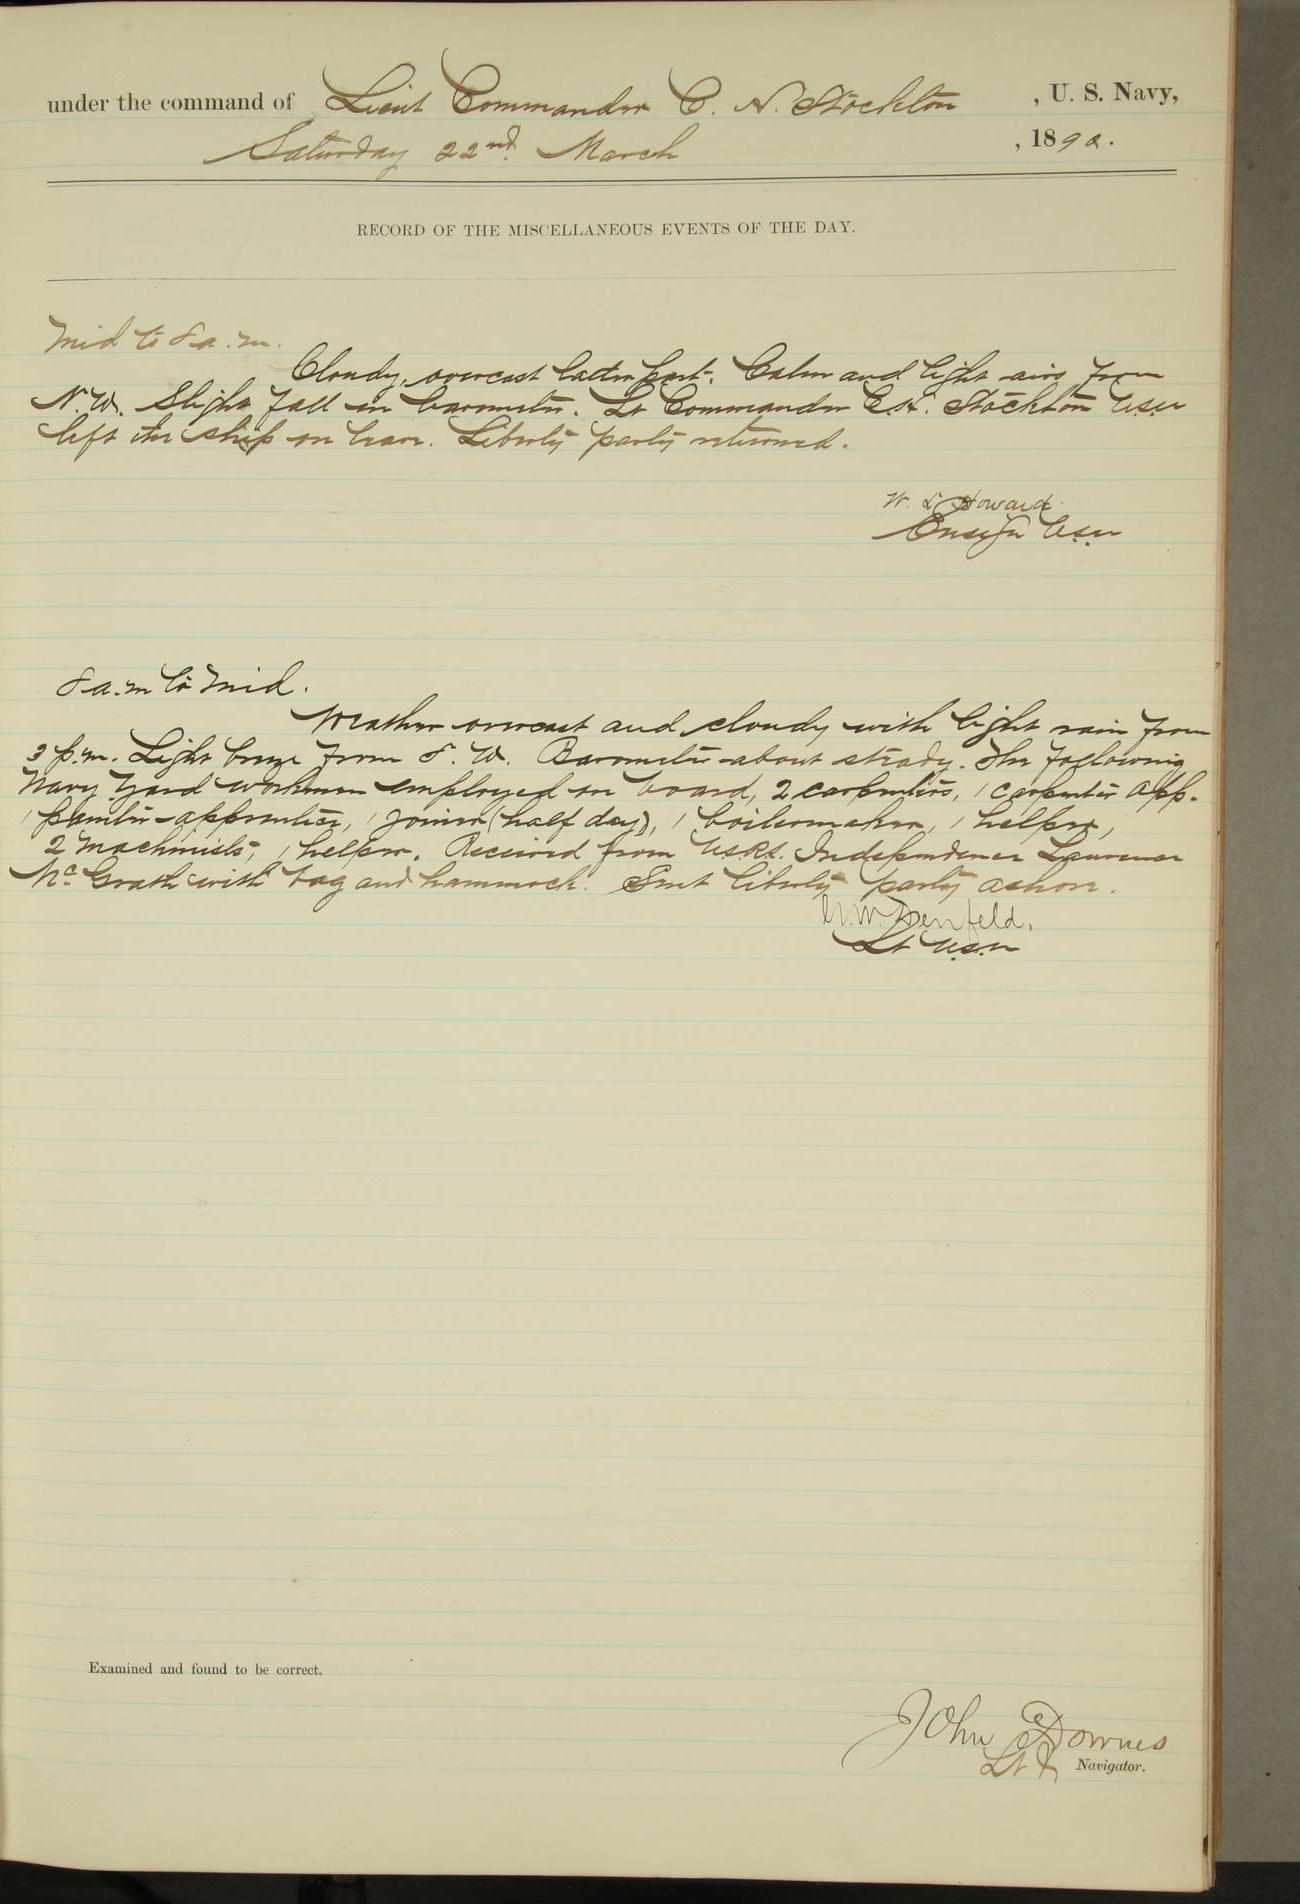 under the command of Lieut Commander C. H. Stockton, U. S. Navy,
Saturday 22nd March, 1892.
RECORD OF THE MISCELLANEOUS EVENTS OF THE DAY.
Mid to 8 a.m.
Cloudy, overcast latter part. Calm and light airs from
N.W. Slight fall in barometer. Lt Commander C.H. Stockton USN
left the ship on leave. Liberty party returned.
W. L. Howard
Ensign USN
8 a.m to Mid.
Weather overcast and cloudy with light rain from
3 p.m. Light breeze from S. W. Barometer about steady. The following
Navy Yard workmen employed on board, 2 carpenters, 1 carpenter app.
1 painter-apprentice, 1 joiner (half day), 1 boilermaker, 1 helper,
2 Machinists, 1 helper. Received from USRS. Independence Laurence
McGrath with bag and hammock. Sent liberty party ashore.
Denfeld.
Lt USN
Examined and found to be correct.
John Downes
Lt & Navigator.